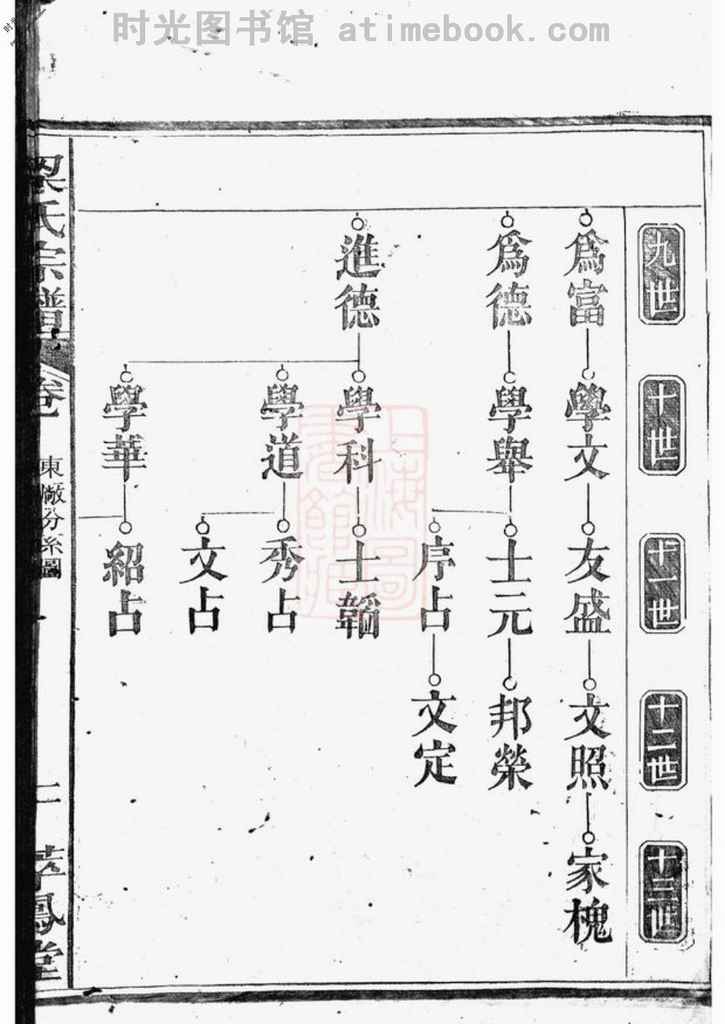 时光图书馆 atimebook.com
九世
十世
十一世
十二世
十三世
為富
學文
友盛
文照
家槐
為德
學舉
士元
邦榮
序占
文定
進德
學科
士韜
學道
秀占
文占
學華
紹占
氏宗譜
卷一
東敞分系圖
二
萃鳳堂